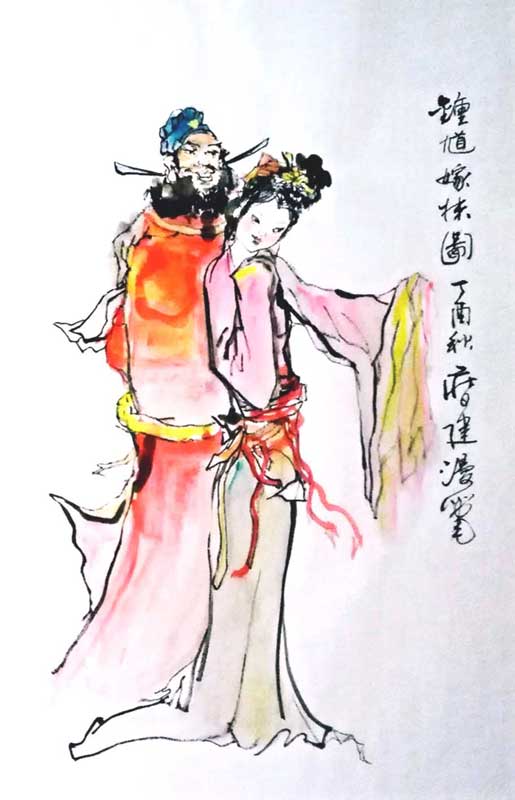 鍾馗嫁妹圖丁酉秋建漫筆